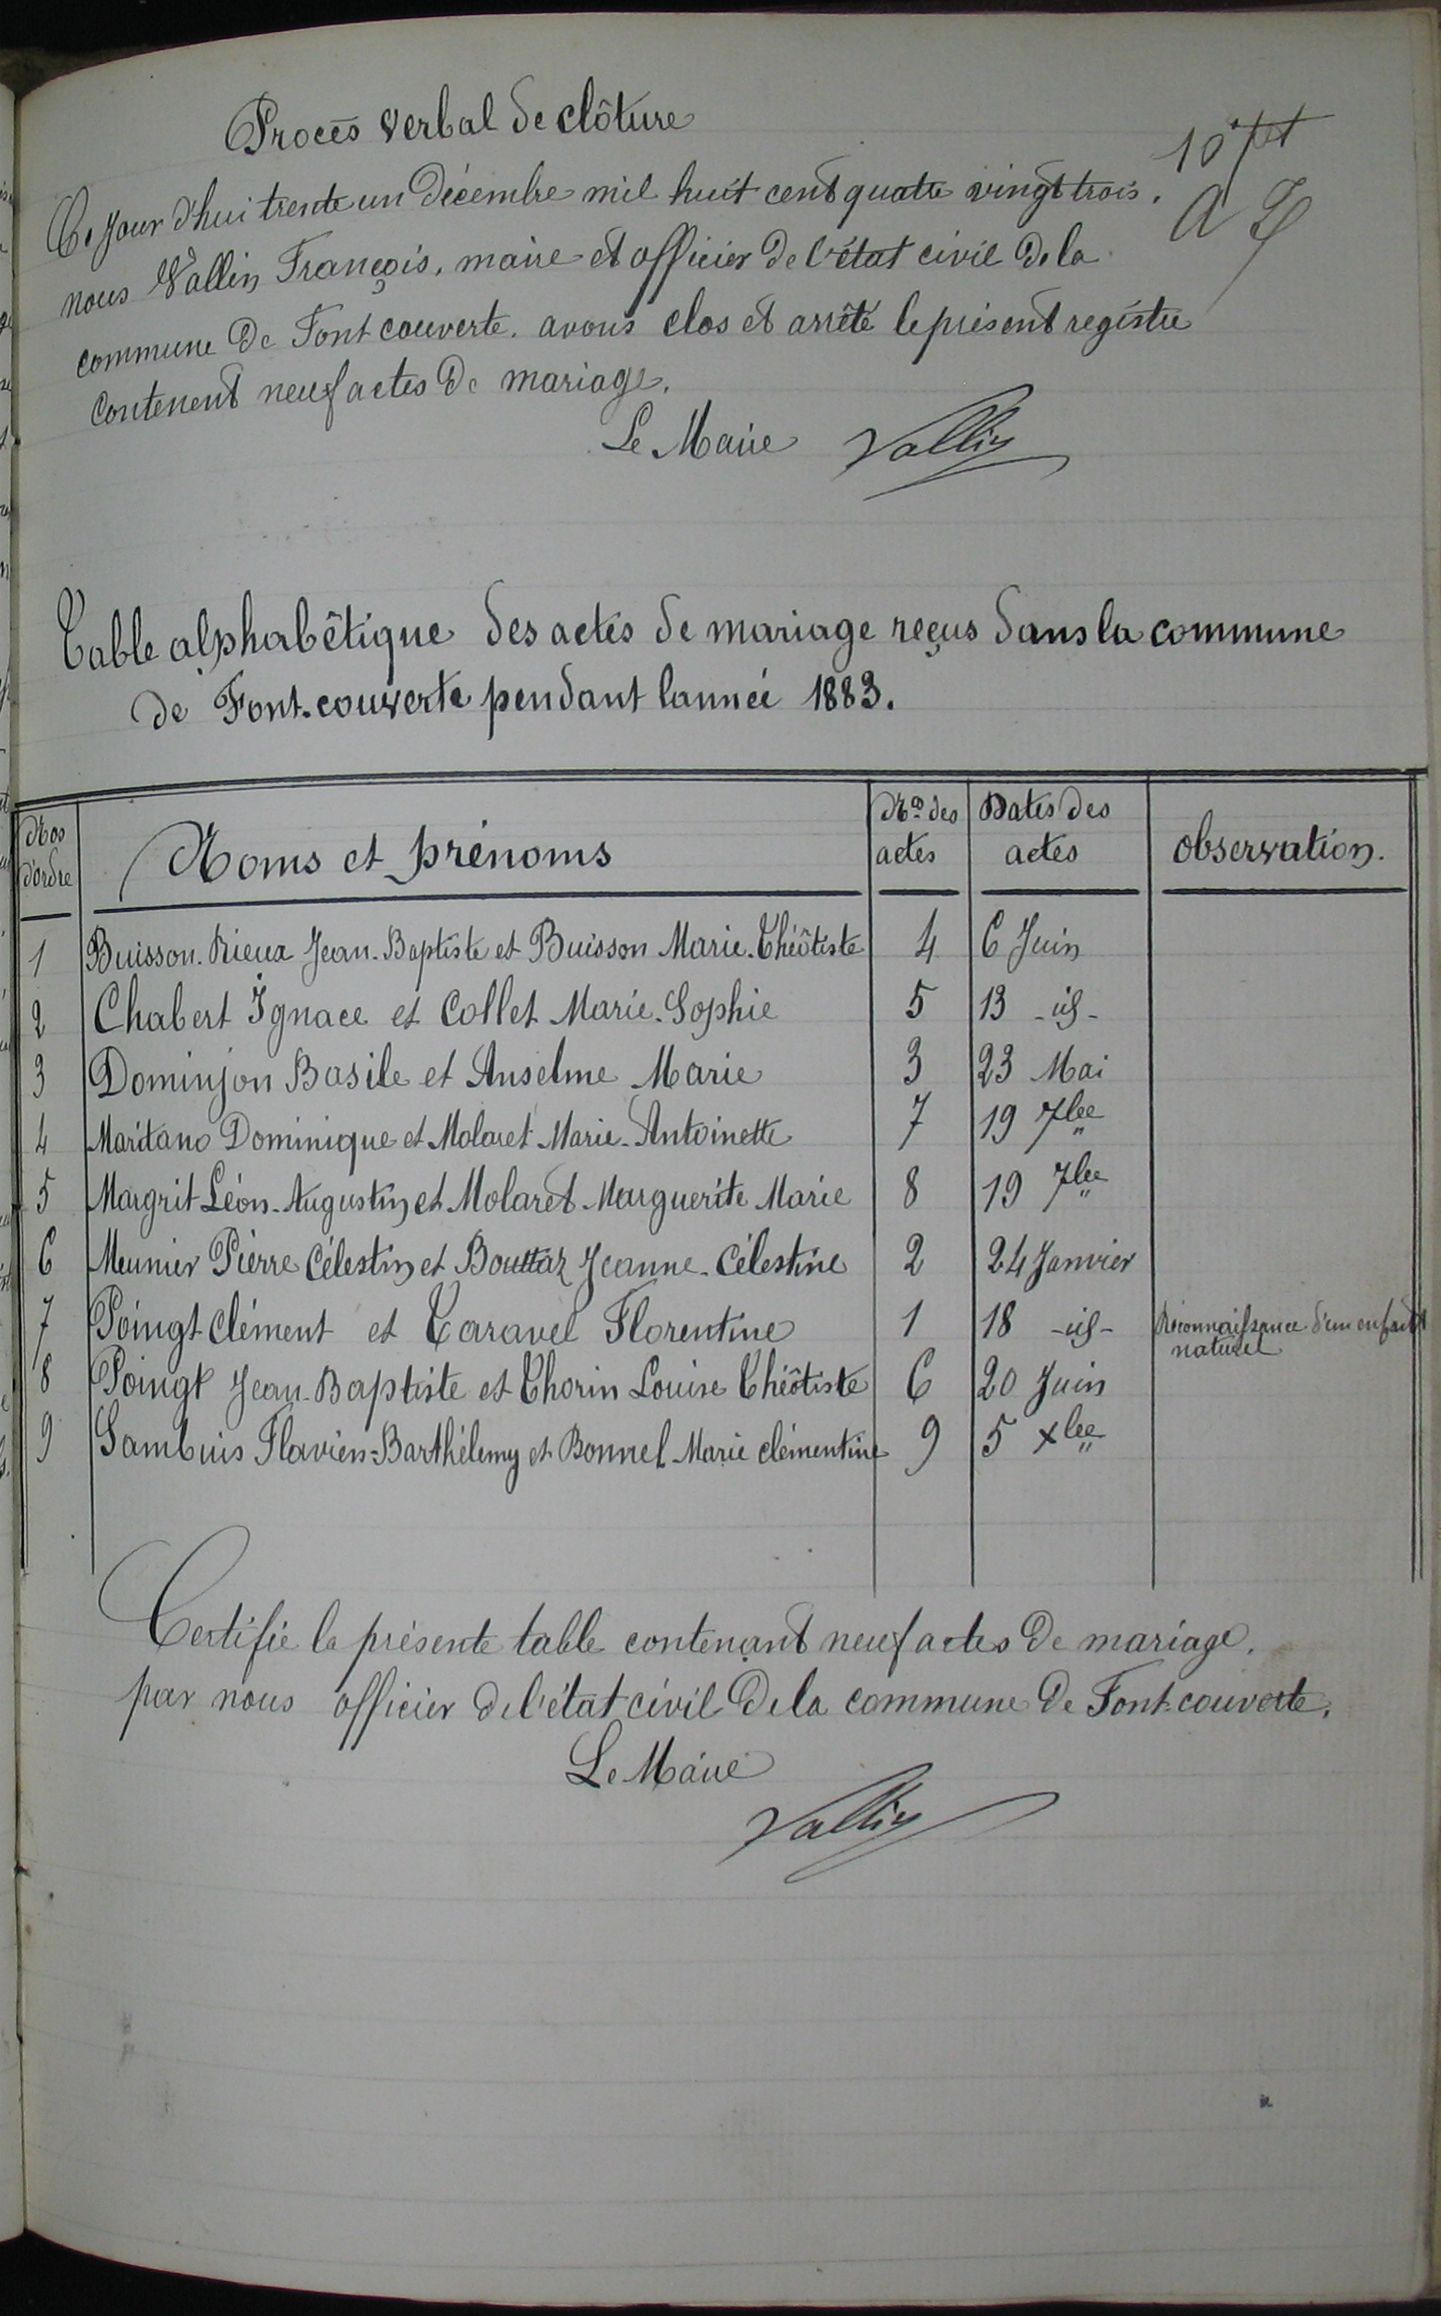 Procès verbal de clôture
Ce jour d'hui trente un Décembre mil huit cent quatre vingt trois.
nous Vallin François, maire et officier de l'état civil de la
commune de Font couverte. avons clos et arrêté le présent registre
contenent neuf actes de mariage.
Le Maire Vallin
Table alphabêtique des actes de mariage reçus dans la commune
de Font-couverte pendant lannée 1883.
Nos d'ordre | Noms et prénoms | No des actes | Dates des actes | observation.
1 Buisson-Rieux Jean-Baptiste et Buisson Marie-Théôtiste 4 6 Juin
2 Chabert Ignace et Collet Marie-Sophie 5 13 -id-
3 Dominjon Basile et Anselme Marie 3 23 Mai
4 Maritano Dominique et Molaret Marie-Antoinette 7 19 7bre
5 Margrit Léon-Augustin et Molaret Marguerite Marie 8 19 7bre
6 Meunier Pierre Célestin et Bouttaz Jeanne-Célestine 2 24 Janvier
7 Poingt Clément et Taravel Florentine 1 18 -id- Reconnaissance d'un enfant
naturel
8 Poingt Jean-Baptiste et Thorin Louise Théôtiste 6 20 Juin
9 Sambuis Flavien-Barthélemy et Bonnel Marie clémentine 9 5 xbre
Certifié la présente table contenant neuf actes de mariage.
par nous officier de l'état civil de la commune de Font-couverte.
Le Maire
Vallin